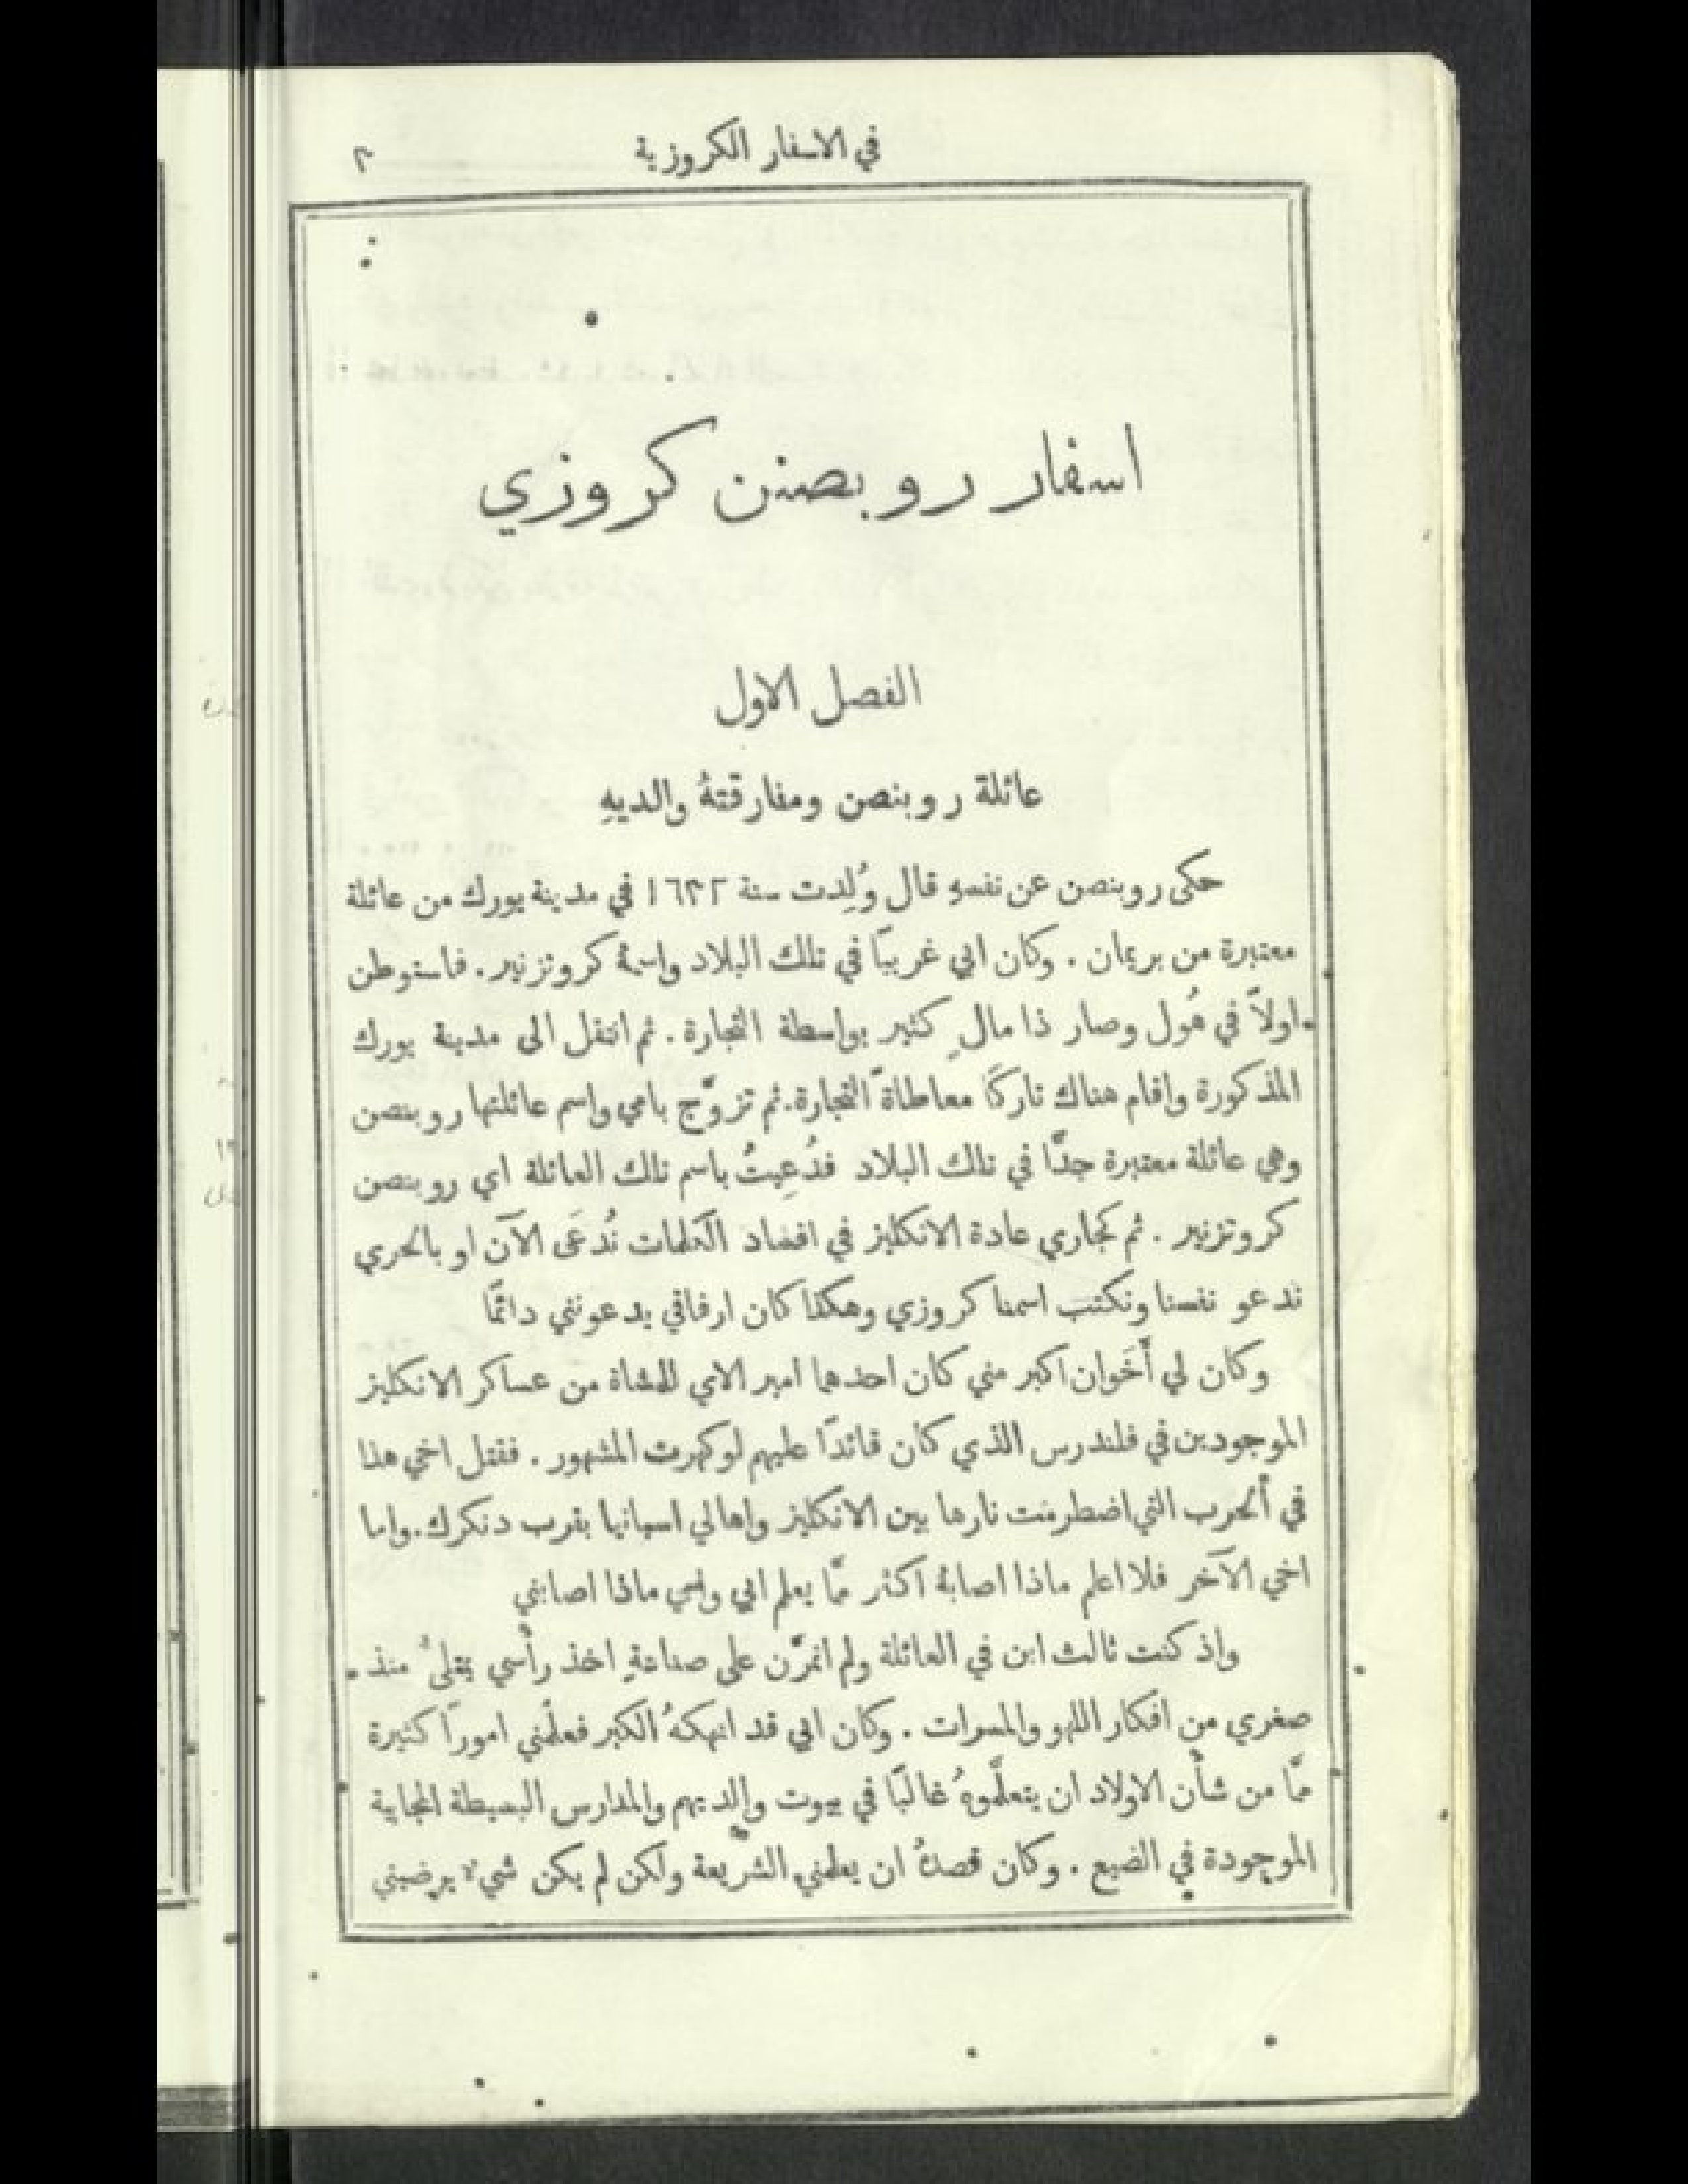 في الاسفار الكروزية ٣
اسفار روبصنن كروزي
الفصل الاول
عائلة روبنصن ومفارقتهُ والديهِ
حكى روبنصن عن نفسهِ قال وُلِدت سنة ١٦٣٢ في مدينة يورك من عائلة
معتبرة من بريمان . وكان ابي غريبًا في تلك البلاد واسمهُ كروتزنير . فاستوطن
اولاً في هُول وصار ذا مالٍ كثير بواسطة التجارة . ثم انتقل الى مدينة يورك
المذكورة واقام هناك تاركًا معاطاة التجارة . ثم تزوَّج بامي واسم عائلتها روبنصن
وهي عائلة معتبرة جدًّا في تلك البلاد فدُعِيتُ باسم تلك العائلة اي روبنصن
كروتزنير . ثم كجاري عادة الانكليز في افساد الكلمات نُدعَى الآن او بالحري
ندعو نفسنا ونكتب اسمنا كروزي وهكذا كان ارفاقي يدعونني دائمًا
وكان لي أَخَوان اكبر مني كان احدهما امير الاي للمشاة من عساكر الانكليز
الموجودين في فلندرس الذي كان قائدًا عليهم لوكهرت المشهور . فقتل اخي هذا
في الحرب التي اضطرمت نارها بين الانكليز واهالي اسبانيا بقرب دنكرك . واما
اخي الآخر فلا اعلم ماذا اصابهُ اكثر ممَّا يعلم ابي وامي ماذا اصابني
واذ كنت ثالث ابن في العائلة ولم اتمرَّن على صناعةٍ اخذ رأسي يمتلئ منذ
صغري من افكار اللهو والمسرات . وكان ابي قد انهكهُ الكبر فعلَّمني امورًا كثيرة
ممَّا من شأن الاولاد ان يتعلَّموهُ غالبًا في بيوت والديهم والمدارس البسيطة المجانية
الموجودة في الضيع . وكان قصدهُ ان يعلمني الشريعة ولكن لم يكن شيء يرضيني